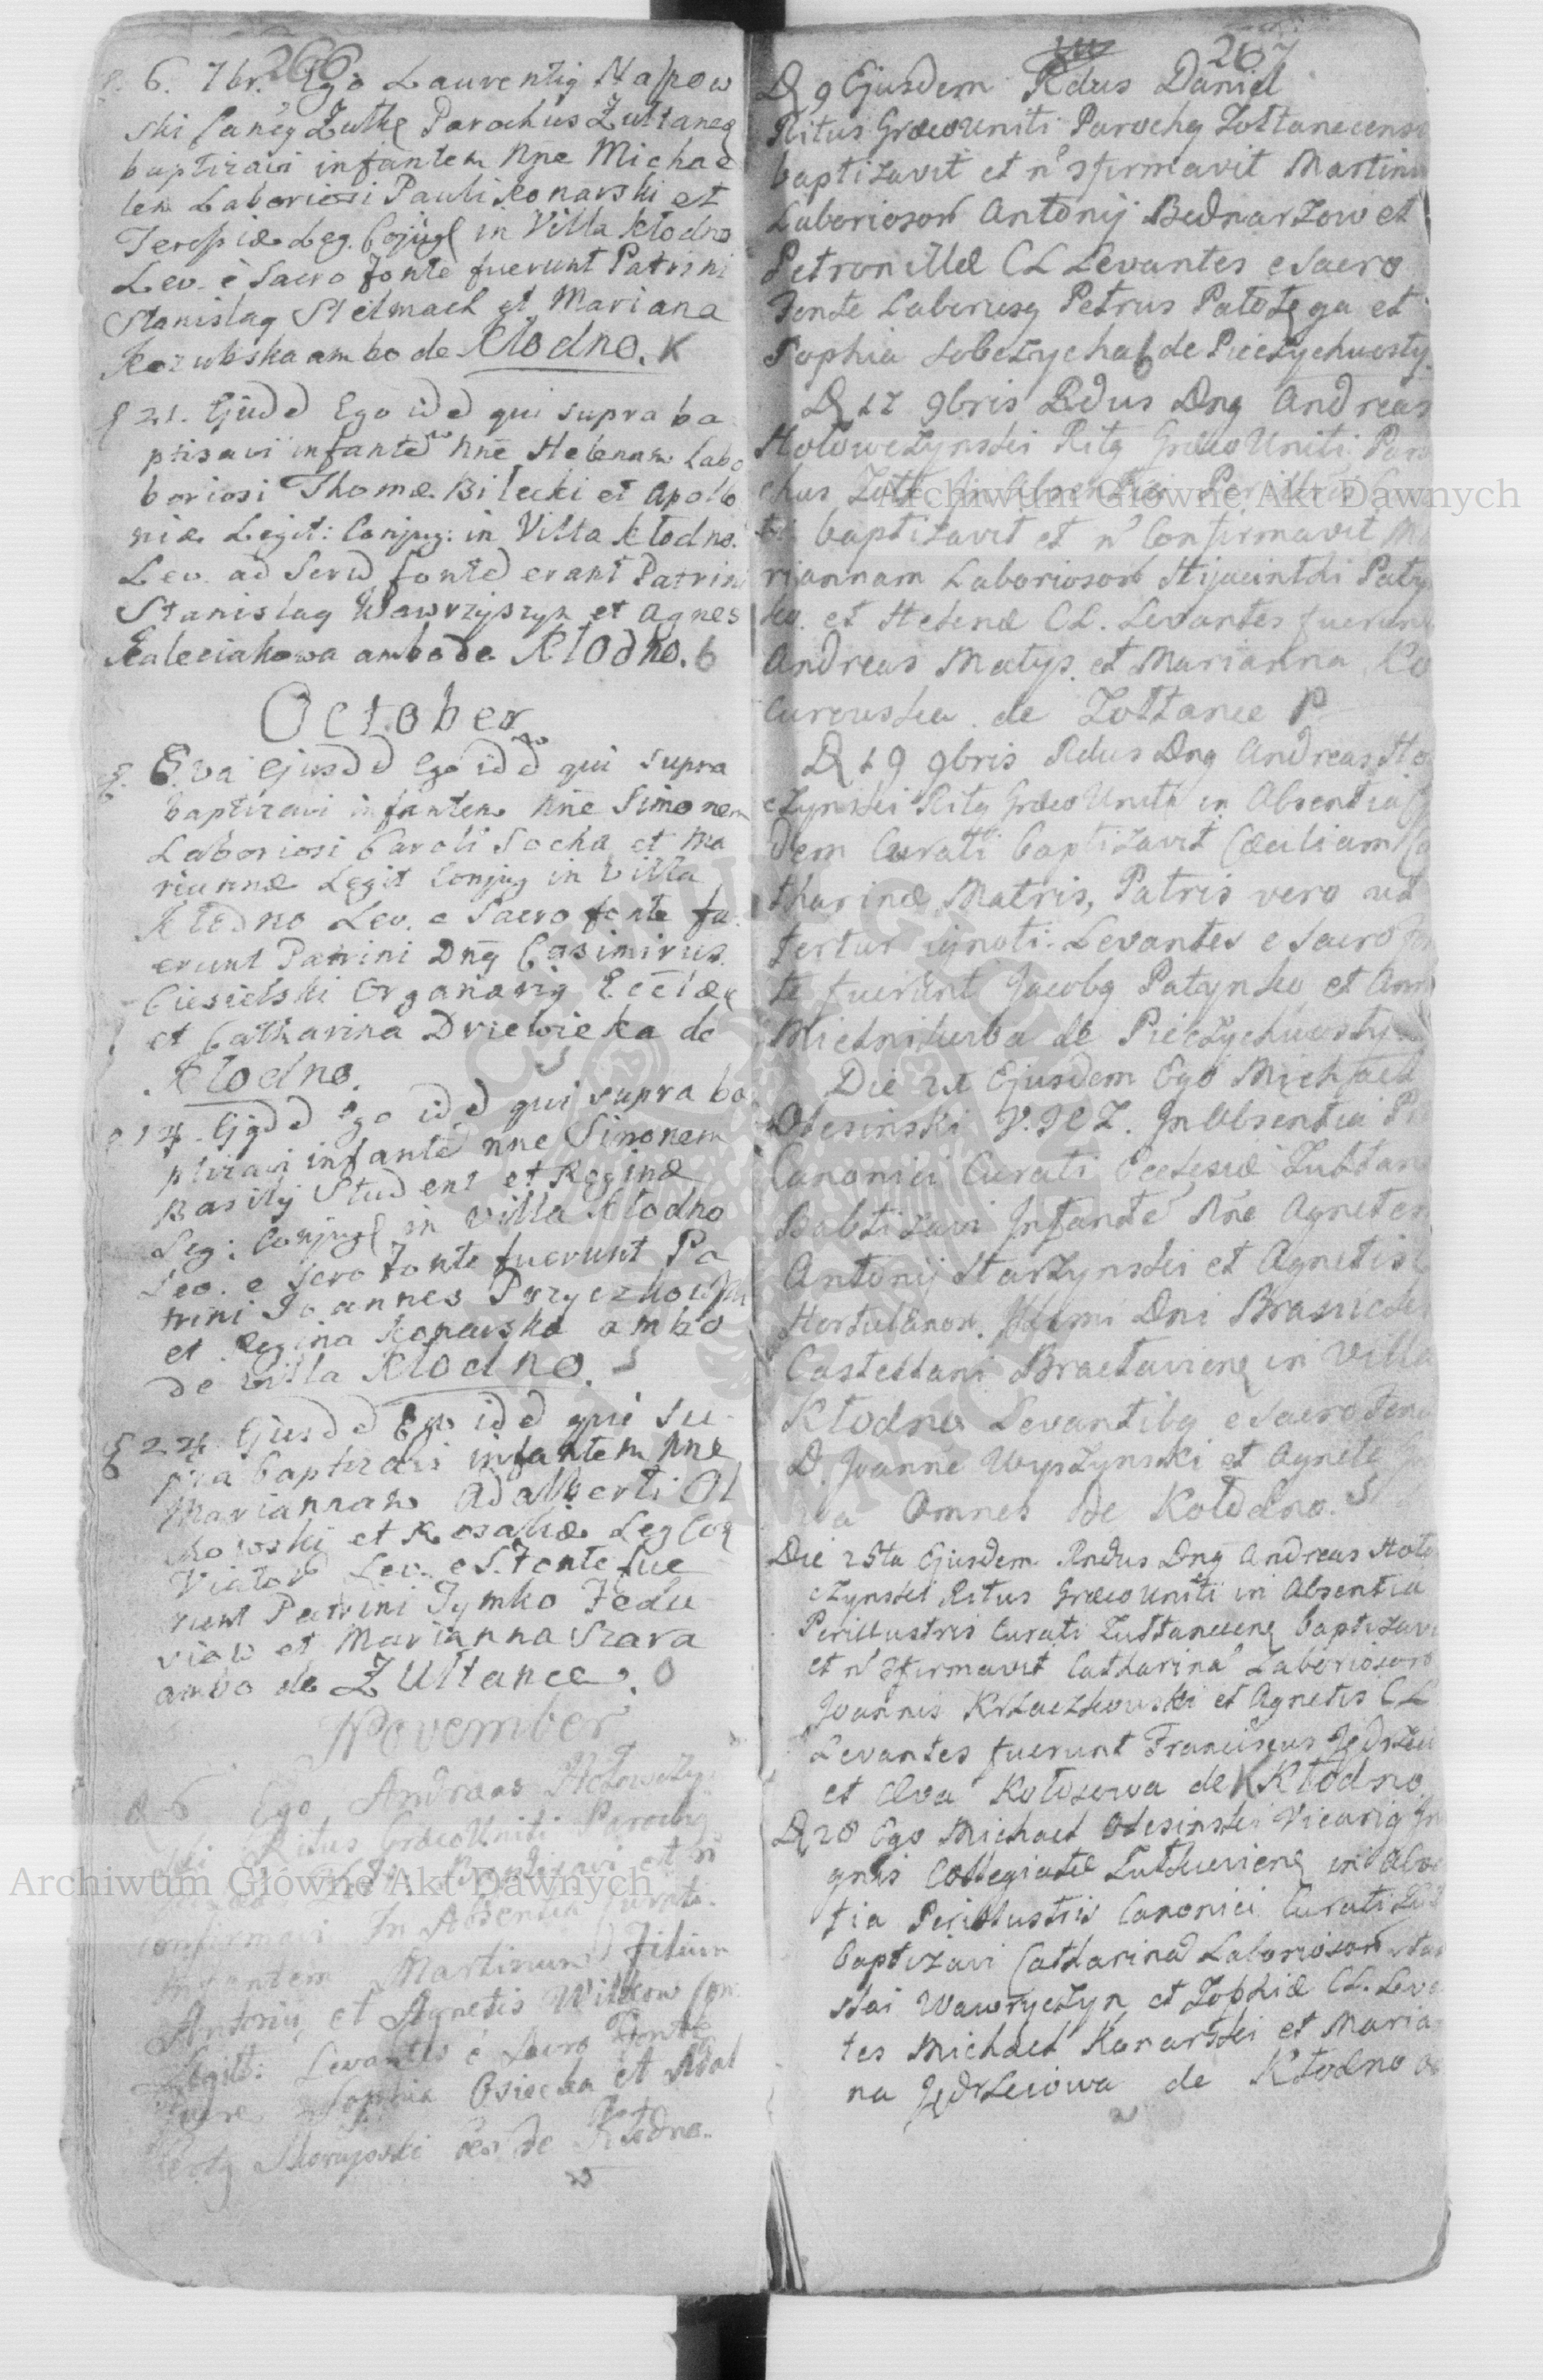 266
6. 7br. Ego Laurentig Napow
ski Caneg Zulkę Parochus Zultaneę
baptizavi infantem Nne Michae
lem Laboriosi Pauli Konarski et
Teressiæ Leg. Cojugę in Villa Kłodno
Lev. è Sacro fonte fuerunt Patrini
Stanislag Stelmach et Mariana
Kozubska ambo de Kłodno. K
21. Ejusdd Ego idd qui supra ba
ptisavi infantē Nne Helenam Labo
boriosi Thomæ Bilecki et Apolo
niæ Legit: Conjug: in Villa Kłodno.
Lev. ad Scrd fonted erant Patrini
Stanislag Wawrzyszyn et Agnes
Kaleciakowa ambode Kłodno. 6
October
6.va Ejusdd Ego idd qui supra
baptizavi infantem Nne Simonem
Laboriosi Caroli Socha et Ma
riannæ Legit Conjug in Villa
Kłodno Lev. e Sacro fonte fu
erunt Patrini Dng Casimirus
Ciesielski Organarig Eccłæę
et Catharina Drzewicka de
Kłodno.
14. Ejgdd Ego idd qui supra ba
ptizavi infantē nne Simonem
Basilij Student et Reginæ
Leg: Conjugę in Villa Kłodno
Lev. e Scro Fonte fuerunt Pa
trini Joannes Przyczkowski
et Regina Konarska ambo
de Villa Kłodno. S
24. Ejusdd Ego idd qui su
pra baptizavi infantem Nne
Mariannam Adalberti Ol
chowski et Rosaliæ Leg Coę
Viatord Lev. e S. Fonte fue
runt Patrini Tymko Fedu
viaw et Marianna Szara
ambo de Zultance. O
November
D 6 Ego Andreas Hołowczy
ski Ritus Græco Uniti Parochg
Baptizavi et n
confirmavi In Absentia Curati
Infantem Martinum Filium
Antonii et Agnetis Witkow Con
Legit: Levantes é Sacro Fonte
fuere Sophia Osiecka et Adal
de Kłodno.
267
D 9 Ejusdem Rdus Daniel
Ritus Græco Uniti Parochg Zołtanecens
baptizavit et n' 3firmavit Martinu
Laboriosor Antonij Bednarzow et
Petronillæ CL Levantes e Sacro
Fonte Laboriosg Petrus Pałotęga et
Sophia Sobczycha de Pieczychwosty.
D 17 9bris Rdus Dng Andreas
Hołowczynski Ritg Græco Uniti Paro
chus Zołt In Absentia Perillris Cura
ti baptizavit et n' Confirmavit Ma
riannam Laboriosor Hijacinthi Paty
ko. et Helenæ CL. Levantes fuerunt
Andreas Matys et Marianna Ko
curouska de Zołtance P
D 19 9bris Rdus Dng Andreas Ho
czynski Ritg Græco Uniti in Absentia
dem Curati baptizavit Cæciliam Ca
tharinæ Matris, Patris vero ut
fertur ignoti. Levantes e Sacro fon
te fuerunt Jacobg Patynko et Ann
Miednikuba de Pieczychwosty
Die 21 Ejusdem Ego Michael
Olesinski V. I C Z. In Absentia P
Canonici Curati Ecclesiæ Zubtan
Babtizavi Infantē Nne Agneten
Antonij Starzynski et Agnetis
Hortulanor. Illmi Dni Branicki
Castellani Bracłavienę in Villa
Kłodno Levantibg e Sacro Fonte
D. Joanne Wyszynski et Agnete
va Omnes de Kołodno. S
Die 25ta Ejusdem Rndus Dng Andreas Hoło
czynski Ritus Græco Uniti in Absentia
Perillustris Curati Zułtancenę baptizavi
et n' 3firmavit Catharina Laboriosoro
Joannis Krzaczkowski et Agnetis CL
Levantes fuerunt Franciscus Jędrzeu
et Eva Kołosowa de Kłodno
D 28 Ego Michael Olesinski Vicarig In
gnis Collegiatæ Zułkuvienę in Abse
tia Perillustris Canonici Curati Zuł
baptizavi Catharina Laboriosor Sta
slai Wawryczyn et Zophiæ CL. Leva
tes Michael Konarski et Maria
na Jędrzeiowa de Kłodno
Archiwum Główne Akt Dawnych
Archiwum Główne Akt Dawnych